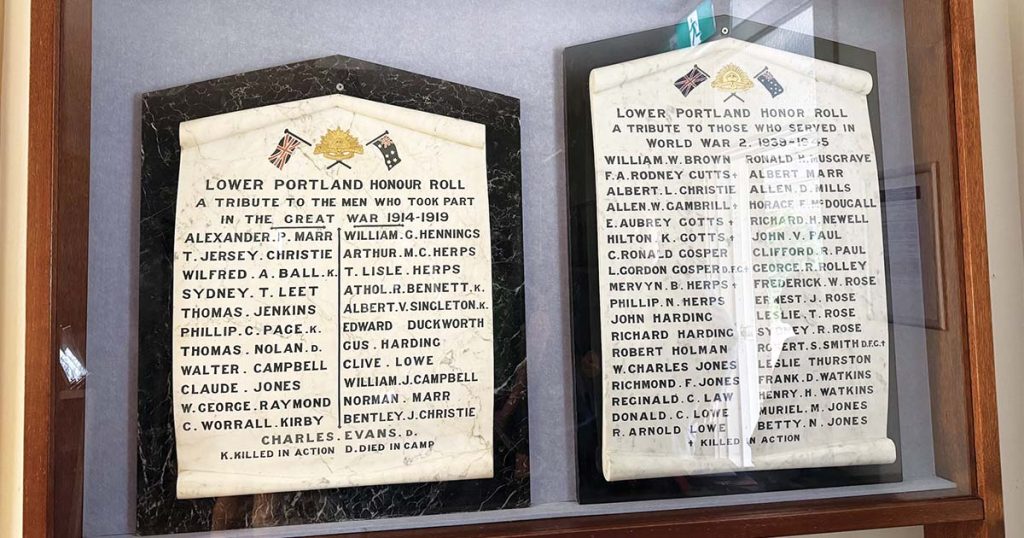 LOWER PORTLAND HONOUR ROLL
A TRIBUTE TO THE MEN WHO TOOK PART
IN THE GREAT WAR 1914-1919
ALEXANDER.P.MARR
T.JERSEY.CHRISTIE
WILFRED.A.BALL.K.
SYDNEY.T.LEET
THOMAS.JENKINS
PHILLIP.C.PAGE.K.
THOMAS.NOLAN.D.
WALTER.CAMPBELL
CLAUDE.JONES
W.GEORGE.RAYMOND
C.WORRALL.KIRBY
WILLIAM.G.HENNINGS
ARTHUR.M.C.HERPS
T.LISLE.HERPS
ATHOL.R.BENNETT.K.
ALBERT.V.SINGLETON.K.
EDWARD DUCKWORTH
GUS.HARDING
CLIVE.LOWE
WILLIAM.J.CAMPBELL
NORMAN.MARR
BENTLEY.J.CHRISTIE
CHARLES.EVANS.D.
K.KILLED IN ACTION D.DIED IN CAMP
LOWER PORTLAND HONOR ROLL
A TRIBUTE TO THOSE WHO SERVED IN
WORLD WAR 2. 1939-1945
WILLIAM.W.BROWN
F.A.RODNEY CUTTS✝
ALBERT.L.CHRISTIE
ALLEN.W.GAMBRILL✝
E.AUBREY GOTTS✝
HILTON.K.GOTTS✝
C.RONALD GOSPER
L.GORDON GOSPER D.F.C✝
MERVYN.B.HERPS✝
PHILLIP.N.HERPS
JOHN HARDING
RICHARD HARDING
ROBERT HOLMAN
W.CHARLES JONES
RICHMOND.F.JONES
REGINALD.C.LAW
DONALD.C.LOWE
R.ARNOLD LOWE
RONALD.H.MUSGRAVE
ALBERT MARR
ALLEN.D.MILLS
HORACE.F.McDOUGALL
RICHARD.H.NEWELL
JOHN.V.PAUL
CLIFFORD.R.PAUL
GEORGE.R.ROLLEY
FREDERICK.W.ROSE
ERNEST.J.ROSE
LESLIE.T.ROSE
SYDNEY.R.ROSE
ROBERT.S.SMITH D.F.C✝
LESLIE THURSTON
FRANK.D.WATKINS
HENRY.H.WATKINS
MURIEL.M.JONES
BETTY.N.JONES
✝ KILLED IN ACTION